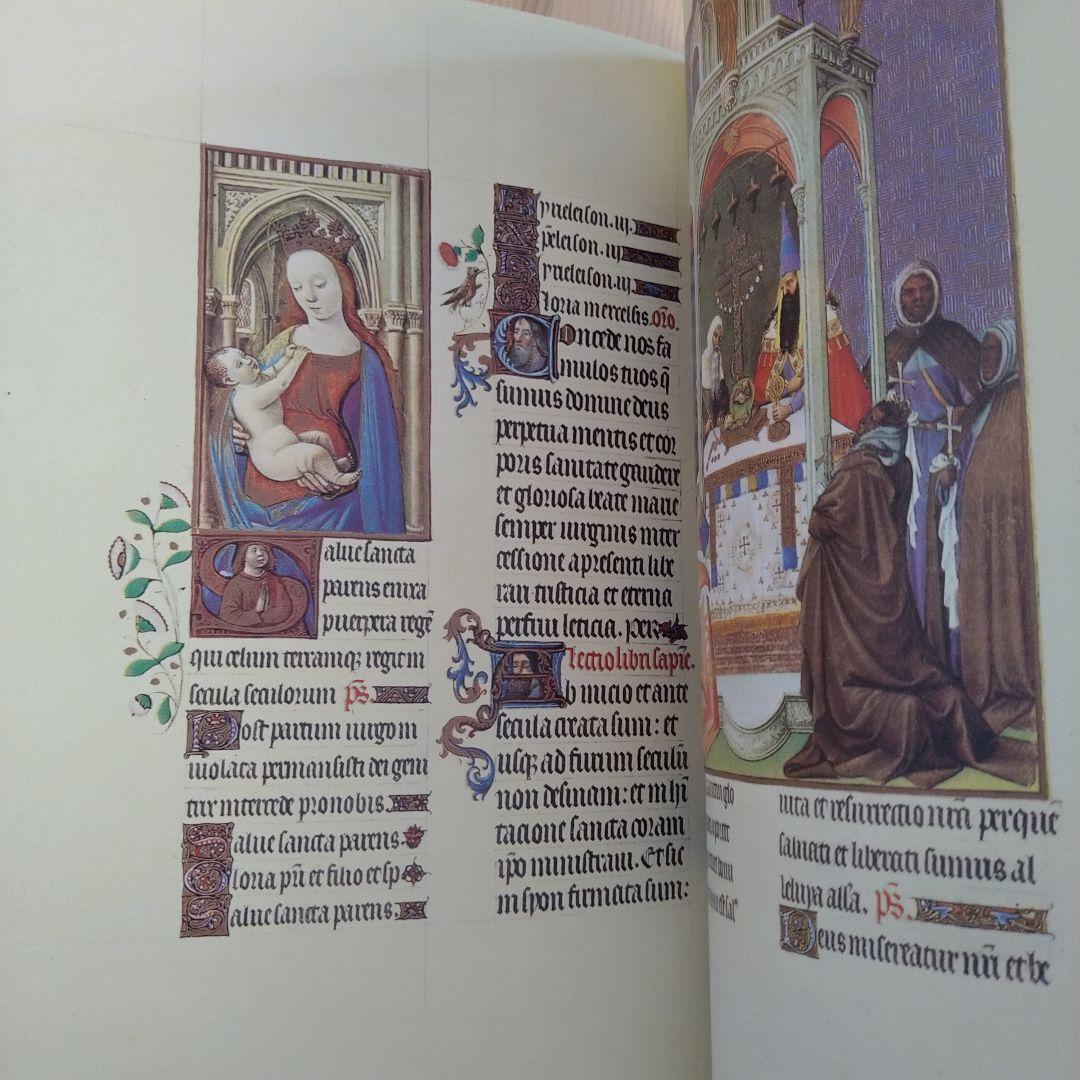 Salue sancta
parens enixa
puerpera regē
qui celum terramq; regit in
secula seculorum p̄s.
Post partum uirgo in
uiolata permansisti dei geni
trix intercede pro nobis.
Salue sancta parens.
Gloria p̄ri et filio et sp
Salue sancta parens.
Kyrieleison.iij.
Xp̄eleison.iij
Kyrieleison.iij
Gloria in excelsis. or̄o.
Concede nos fa
mulos tuos q̄
sumus domine deus
perpetua mentis et cor
poris sanitate gaudere
et gloriosa beate marie
semper uirginis inter
cessione a presenti libe
rari tristicia et eterna
perfrui leticia. Per
Lectio libri sapiē.
Ab inicio et ante
secula creata sum: et
usq; ad futurum seculū
non desinam: et in hī
tacione sancta coram
ip̄o ministraui. Et sic
in syon firmata sum:
uita et resurrectio nr̄a per quē
saluati et liberati sumus al
leluya all̄a. p̄s.
Deus misereatur nr̄i et be